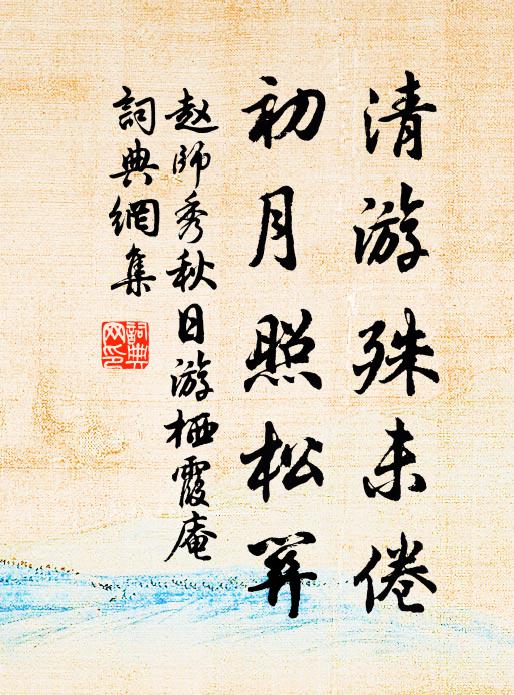 清游殊未倦
初月照松關
趙師秀秋日游栖霞庵
詞典網集
詞典網印